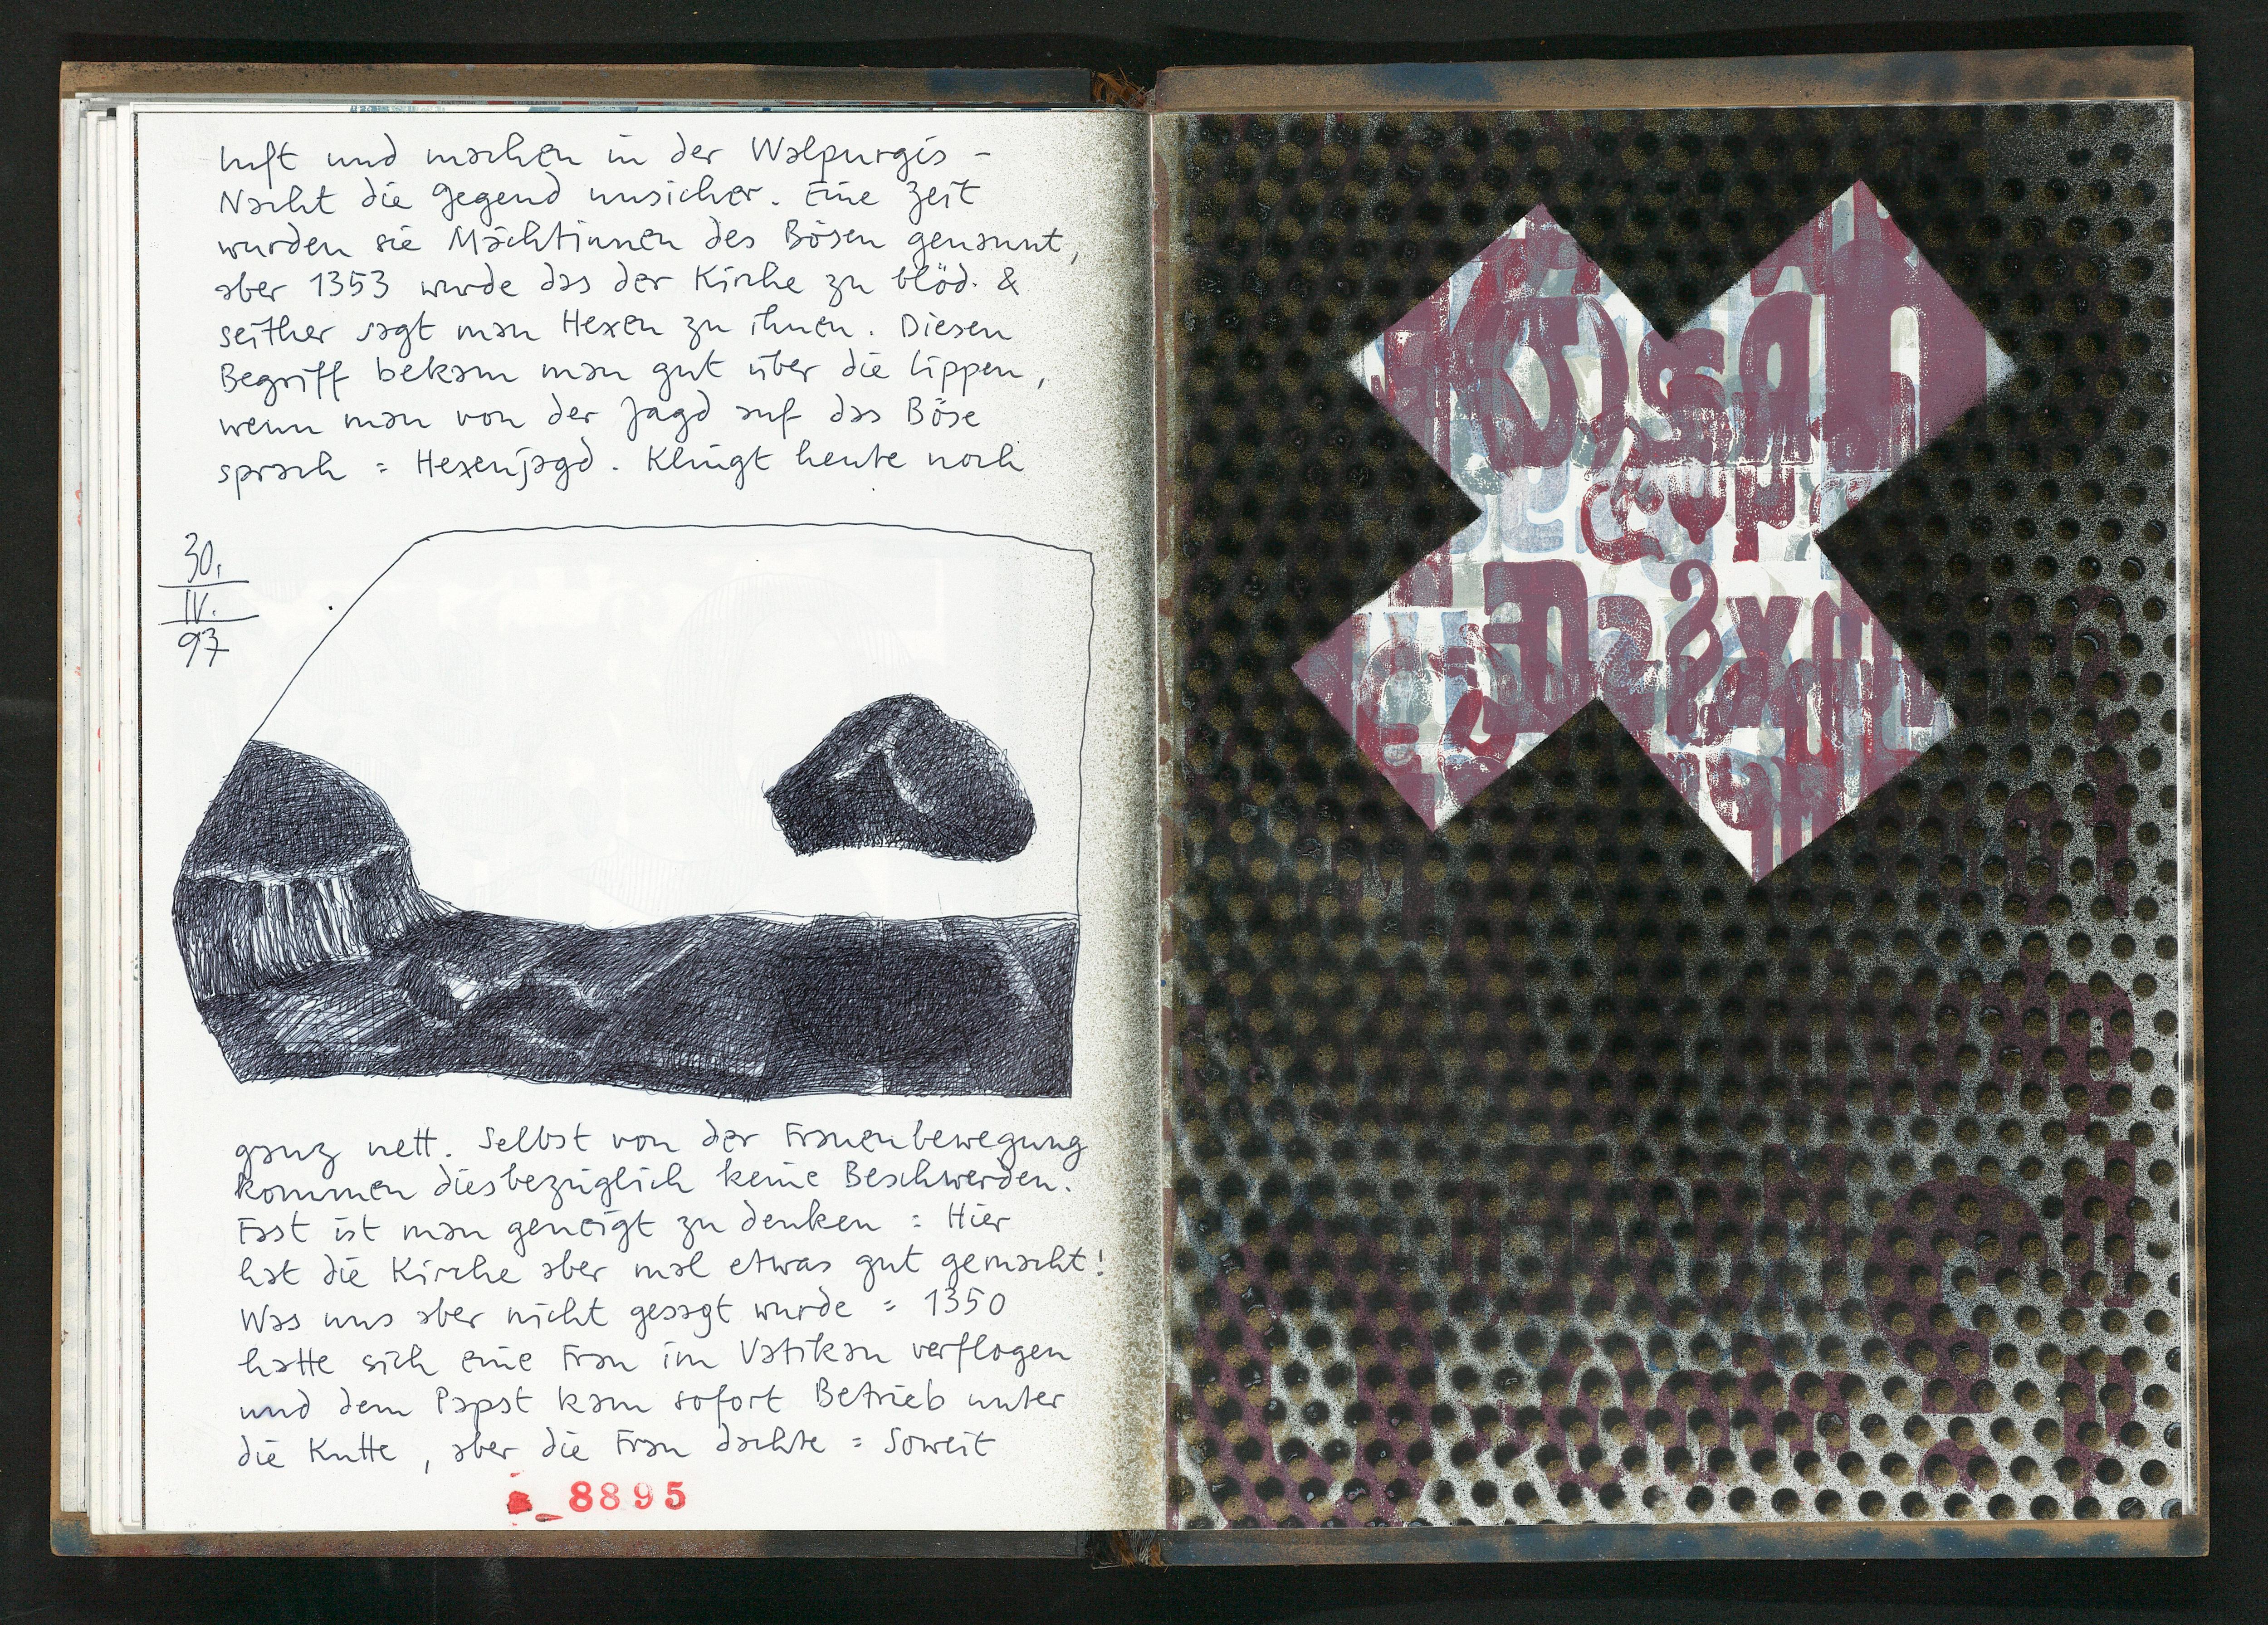 luft und machen in der Walpurgis-
Nacht die Gegend unsicher. Eine Zeit
wurden sie Mächtinnen des Bösen genannt,
aber 1353 wurde das der Kirche zu blöd. &
seither sagt man Hexen zu ihnen. Diesen
Begriff bekam man gut über die Lippen,
wenn man von der Jagd auf das Böse
sprach = Hexenjagd. Klingt heute noch
30.
IV.
97
ganz nett. Selbst von der Frauenbewegung
kommen diesbezüglich keine Beschwerden.
Fast ist man geneigt zu denken = Hier
hat die Kirche aber mal etwas gut gemacht!
Was uns aber nicht gesagt wurde = 1350
hatte sich eine Frau im Vatikan verflogen
und dem Papst kam sofort Betrieb unter
die Kutte, aber die Frau dachte = Soweit
8895